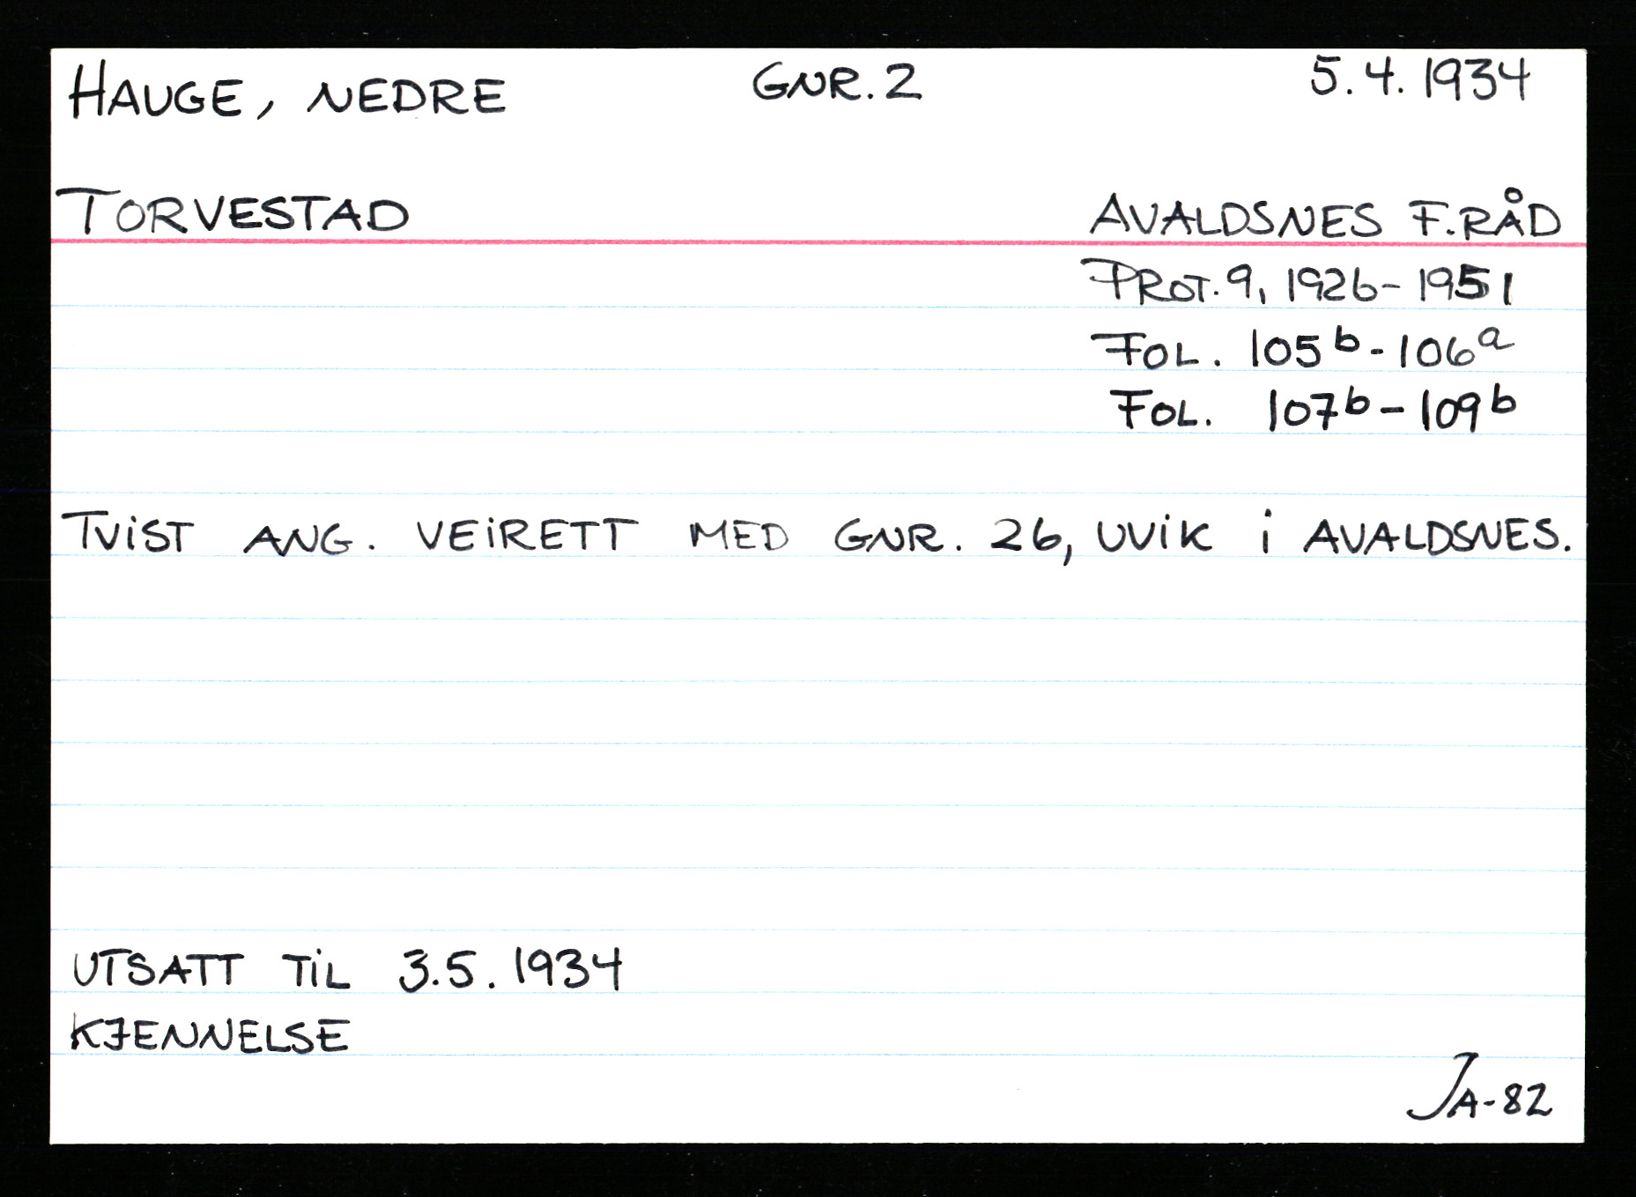 HAUGE, NEDRE GNR. 2 5.4.1934
TORVESTAD AVALDSNES F.RÅD
PROT. 9, 1926-1951
FOL. 105b-106a
FOL. 107b-109b
TVIST ANG. VEIRETT MED GNR. 26, UVIK I AVALDSNES.
UTSATT TIL 3.5.1934
KJENNELSE
JA-82